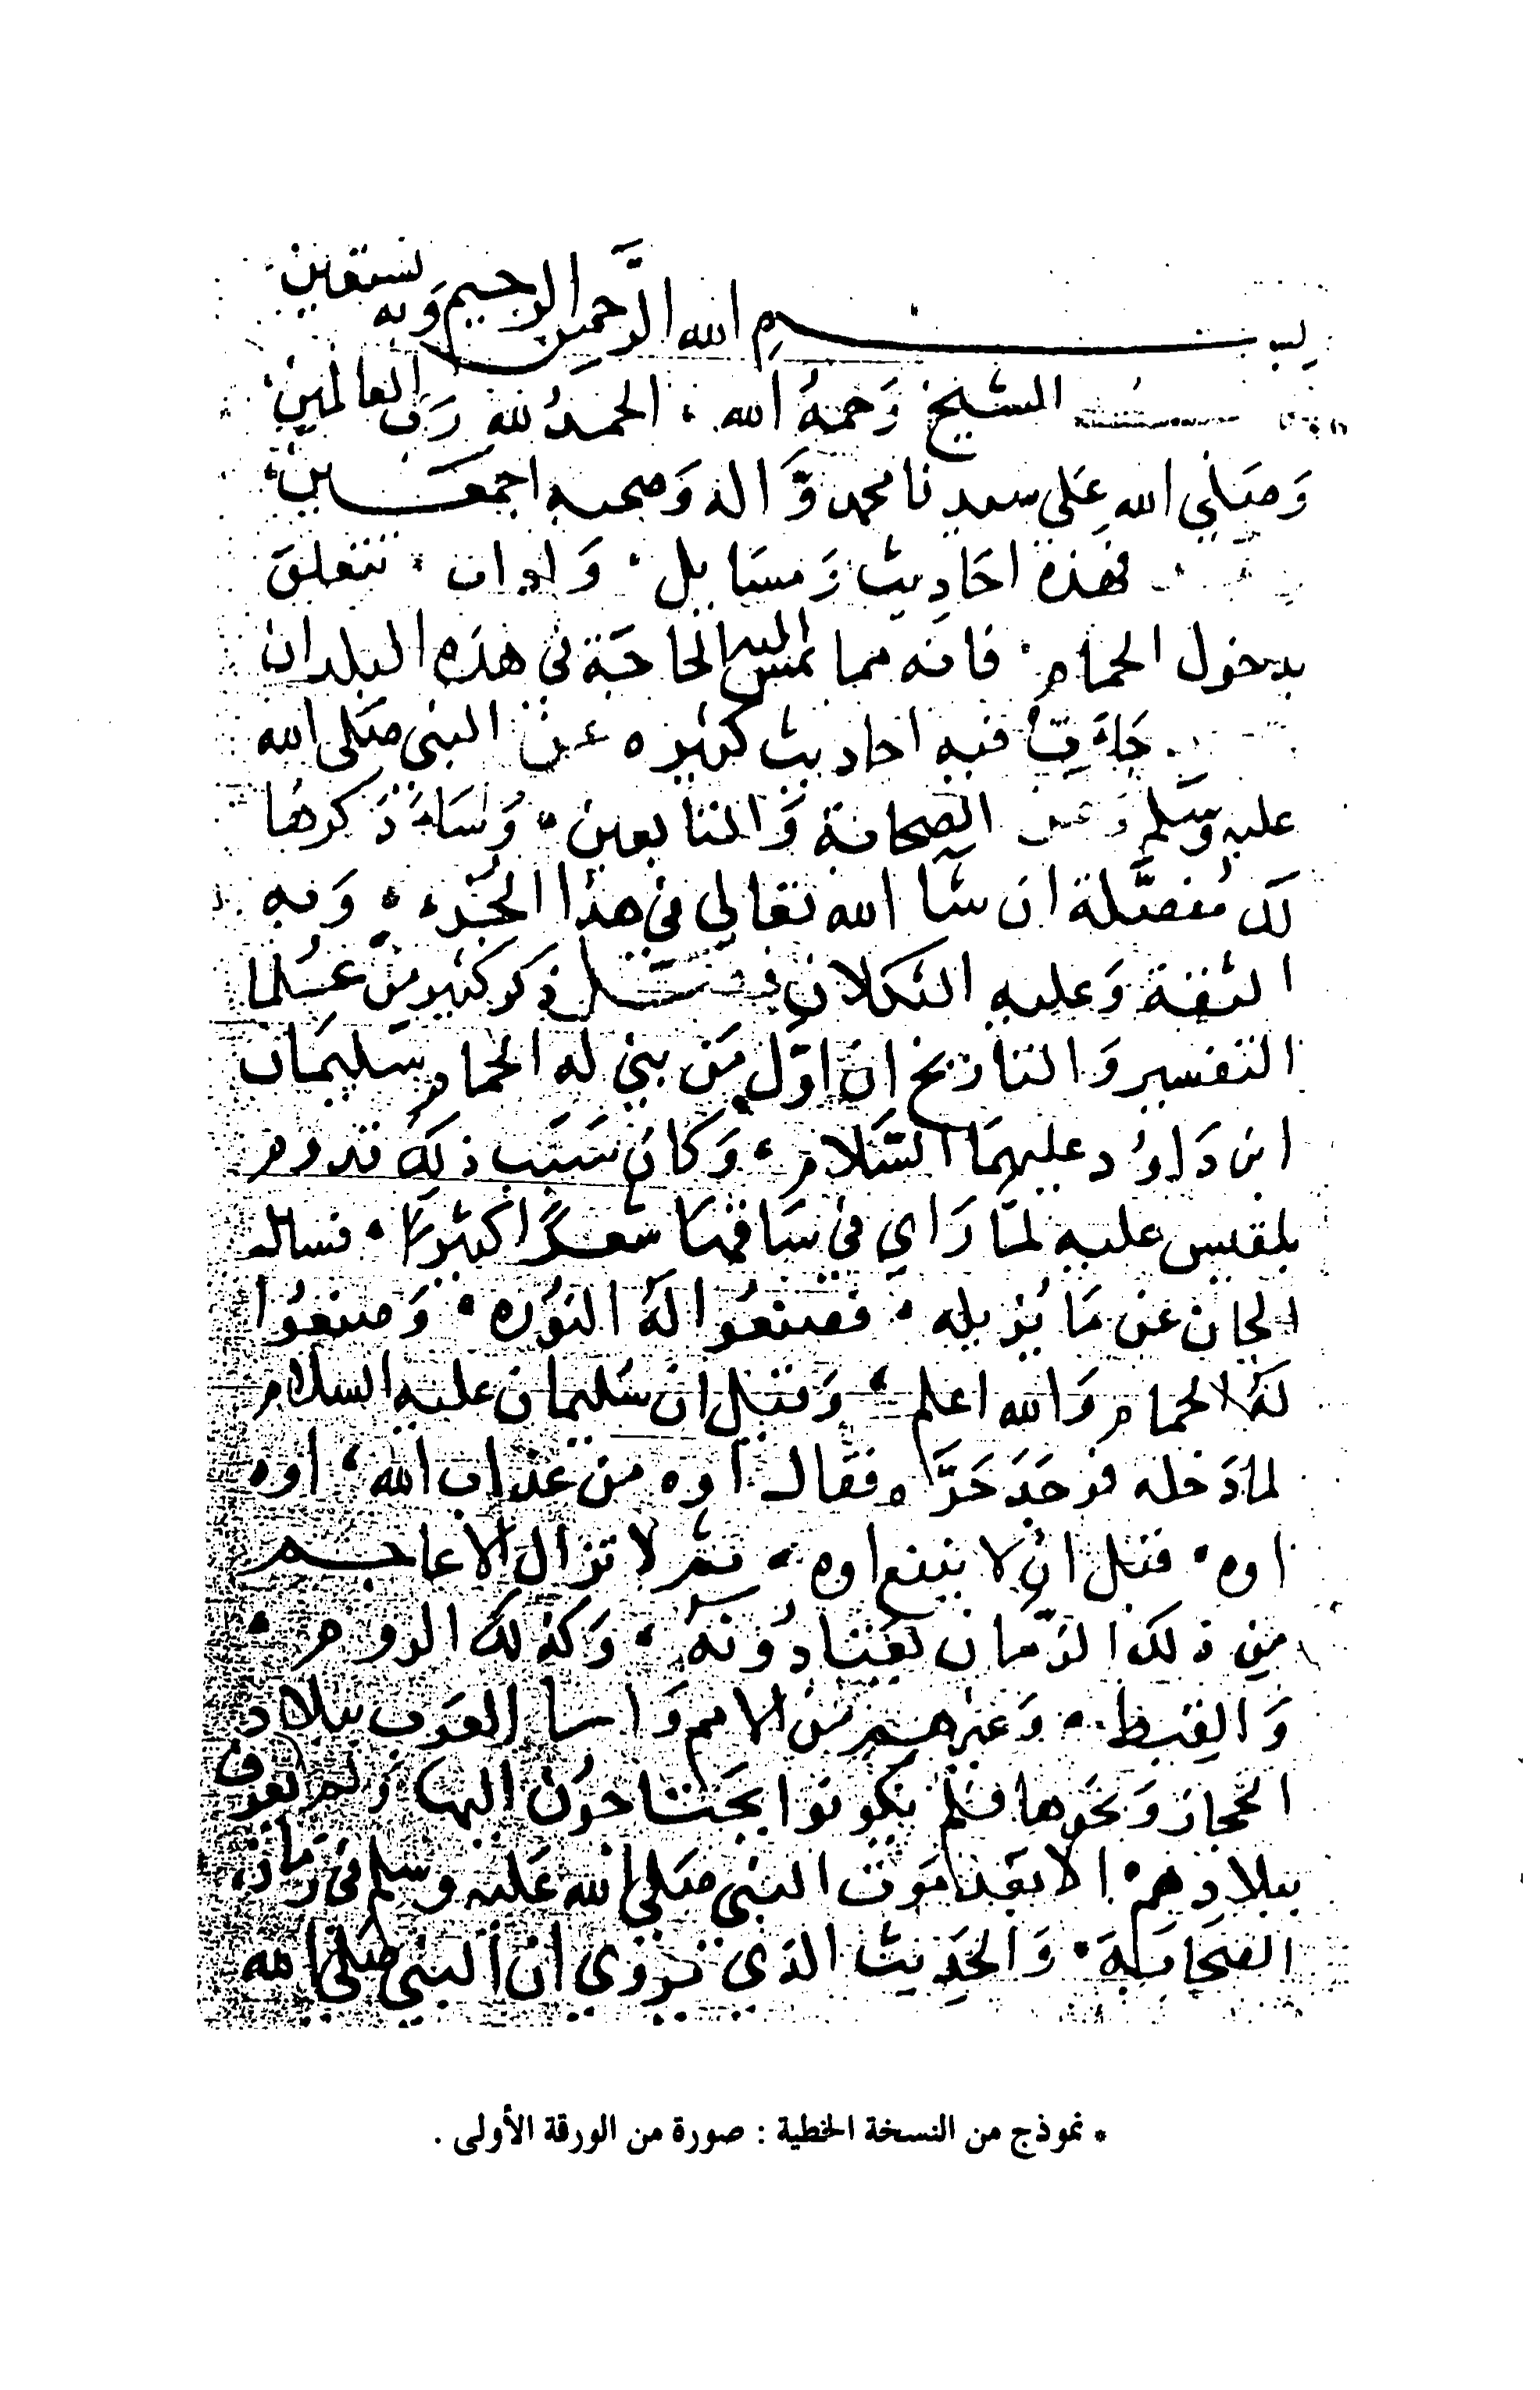 بسم الله الرحمن الرحيم وبه نستعين
الشيخ رحمه الله، الحمد لله رب العالمين
وصلي الله علي سيدنا محمد وآله وصحبه اجمعين
فهذه احاديث ومسايل، واداب، تتعلق
بدخول الحمام، فانه مما تمس اليه الحاجة في هذه البلدان
جاءت فيه احاديث كثيره عن النبي صلى الله
عليه وسلم وعن الصحابة والتابعين، ذكرها
لك مفصلة ان شآ الله تعالي في هذا الجزء، وبه
الثقة وعليه التكلان فصل ذكر كثير من علما
التفسير والتاريخ ان اول من بني له الحمام سليمان
ابن داود عليهما السلام، وكان سبب ذلك قدوم
بلقيس عليه لما راي في ساقها شعرا كثيرا، فسال
الجان عن ما يزيله، فصنعوا له النوره، وصنعوا
له الحمام والله اعلم، وقيل ان سليمان عليه السلام
لما دخله فوجد حرا، فقال اوه من عذاب الله، اوه
اوه، قبل ان لا ينفع اوه، ثم لا تزال الاعاجم
من ذلك الزمان يعتادونه، وكذلك الروم،
والقبط، وغيرهم من الامم واما العرب ببلاد
الحجاز ونحوها فلم يكونوا يحتاجون اليها ولم تعرف
ببلادهم، الا بعد موت النبي صلى الله عليه وسلم في زمان
الصحابة، والحديث الذي يروي ان النبي صلى الله
* نموذج من النسخة الخطية : صورة من الورقة الأولى .